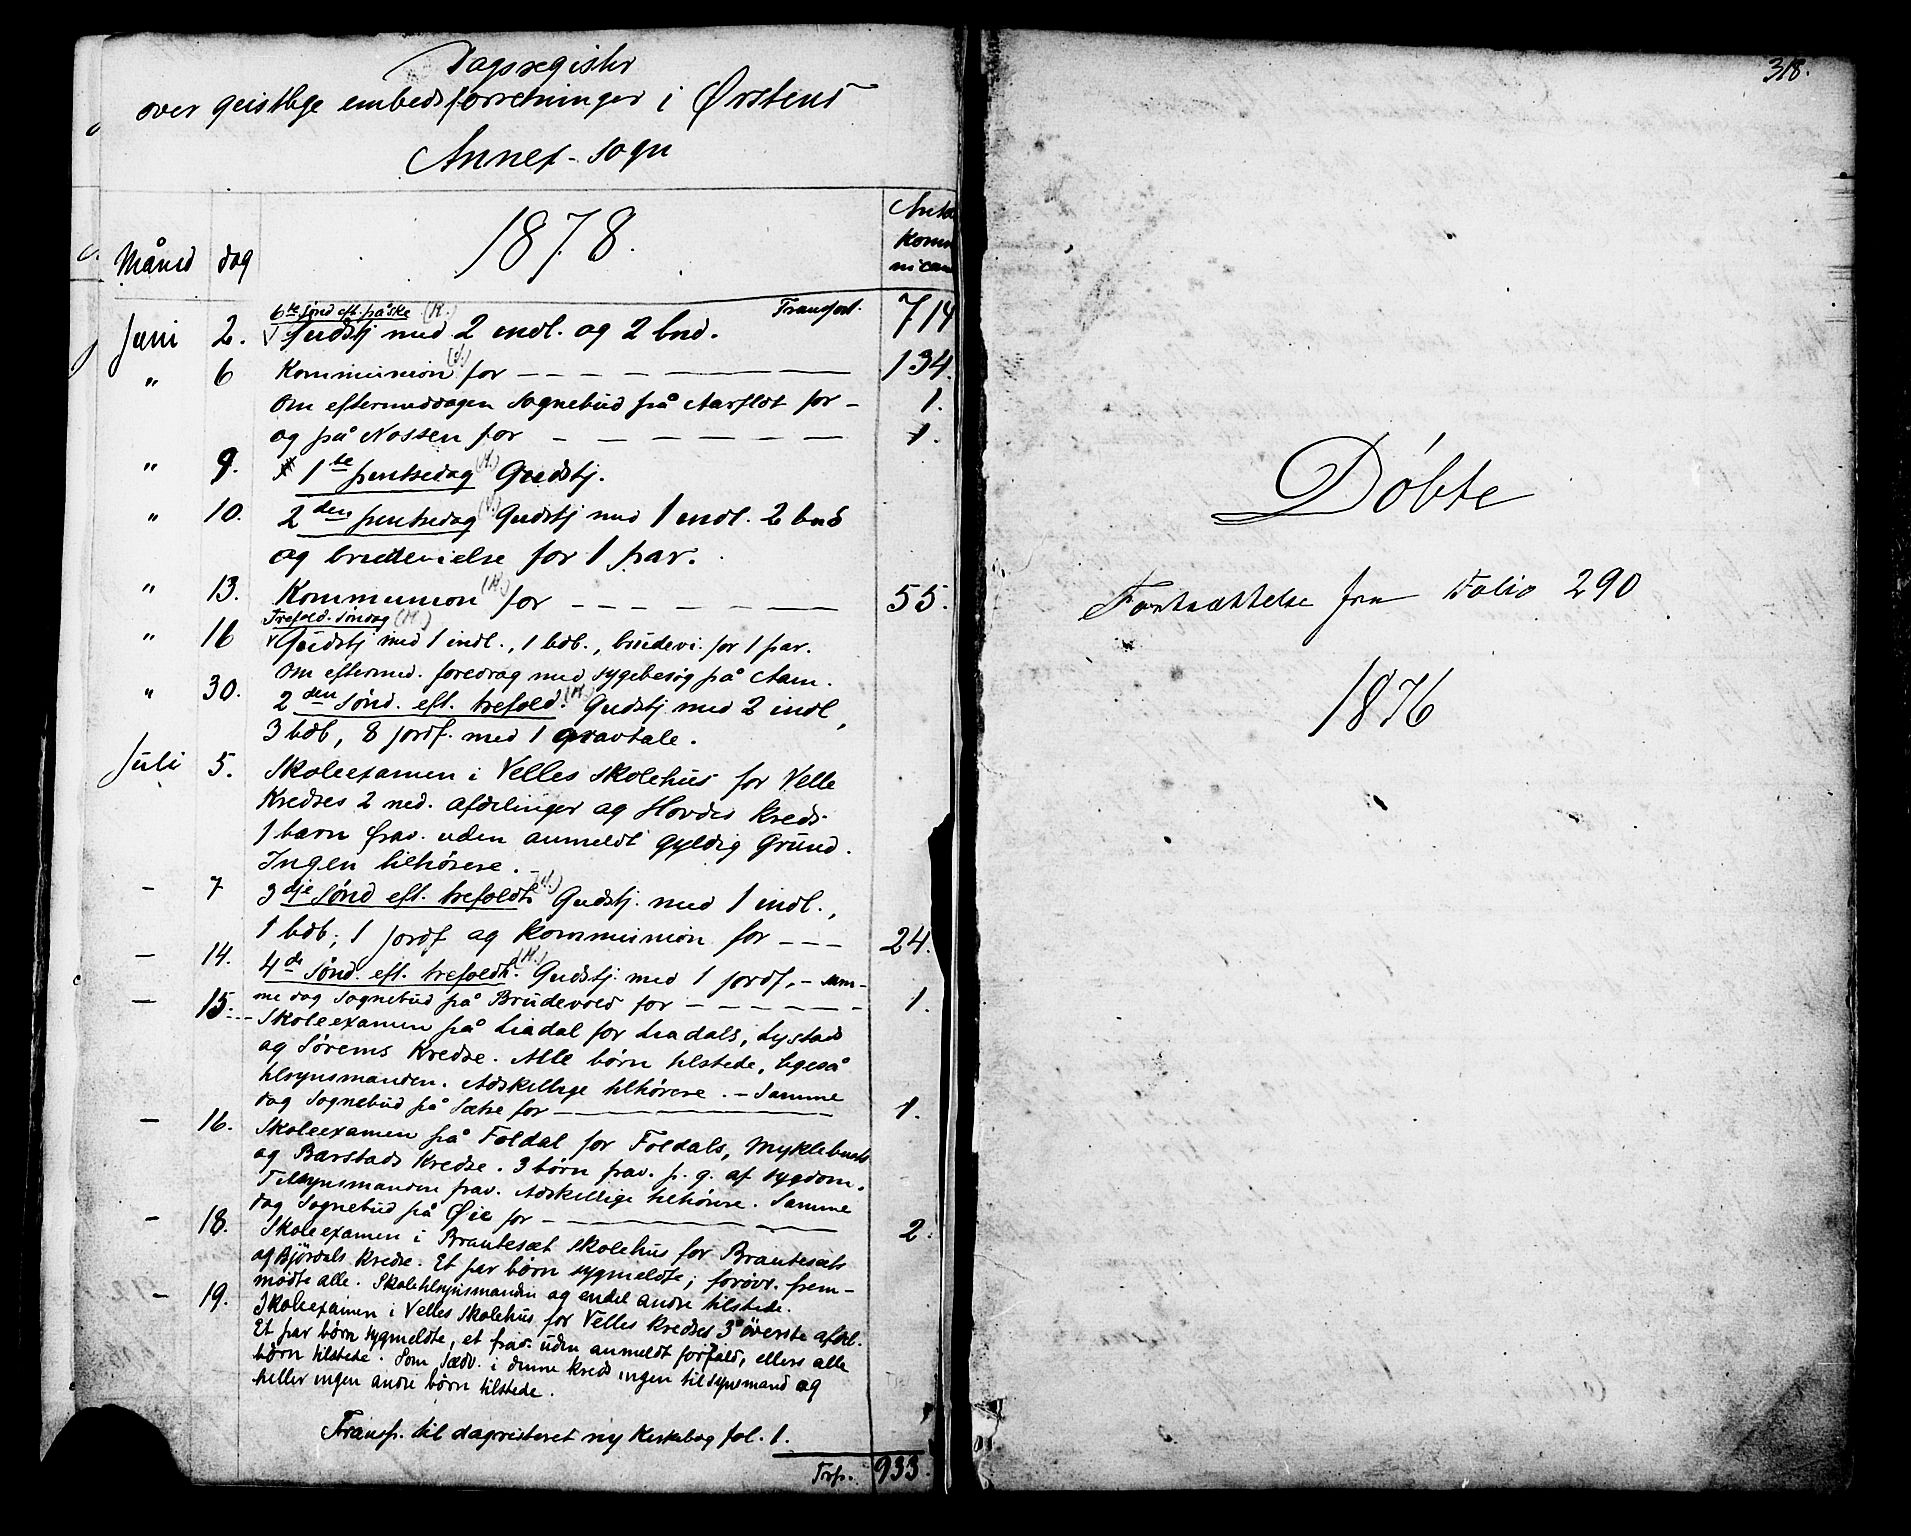 Dagsregister
over geistlige embedsforretninger i Ørstens
Annex-sogn
Måned dag 1878. Antal
Kommu
nican
6te sønd eft. påske (H.) Transport. 714
Juni 2. Gudstj med 2 indl. og 2 bvd.
" 6 Kommunion for — — — 134.
Om eftermiddagen Sognebud på Aarflot for — 1.
og på Nossen for — — — 1.
" 9. 1te pintsedag (H.) Gudstj.
" 10. 2den pintsedag (H.) Gudstj med 1 indl. 2 bvd
og brudevielse for 1 par.
" 13. Kommunion (H.) for — — — 55.
Trefold. søndag (H.)
" 16 Gudstj med 1 indl., 1 bdb., brudevi. for 1 par.
Om eftermed. foredrag med sygebesøg på Aam.
" 30. 2den sønd. eft. trefold. (H.) Gudstj med 2 indl,
3 bdb, 8 jordf. med 1 gravtale.
Juli 5. Skoleexamen i Velles skolehus for Velle
Kredses 2 ned. afdelinger og Hovdes Kreds.
1 barn frav. uden anmeldt gyldig Grund.
Ingen tilhørere.
— 7 3dje sønd eft. trefoldt. (H.) Gudstj. med 1 indl.,
1 bdb; 1 jordf og kommunion for — — — 24.
— 14. 4de sønd. eft. trefoldt. (H.) Gudstj. med 1 jordf. — sam-
me dag Sognebud på Brudevold for — — — 1.
— 15. Skoleexamen på Liadal for Liadals, Lystads
og Sørems Kredse. Alle børn tilstede, ligeså
tilsynsmanden. Adskillige tilhørere. — Samme
dag Sognebud på Sætre for — — — 1.
— 16. Skoleexamen på Foldal for Foldals, Myklebusts
og Barstads Kredse. 3 børn frav. p. g. af sygdom.
Tilsynsmanden frav. Adskillige tilhørere. Samme
dag Sognebud på Øie for — — — 2.
— 18. Skoleexamen i Brautesæt Skolehus for Brautesæts
og Bjørdals Kredse. Et par børn sygmeldte; forøvr. frem-
mødte alle. Skoletilsynsmanden og endel andre tilstede.
— 19. Skoleexamen i Velles Skolehus for Velles kredses 3 øverste afdel.
Et par børn sygmeldte, et frav. uden anmeldt forfald, ellers alle
børn tilstede. Som sædv. i denne kreds ingen tilsynsmand og
heller ingen andre børn tilstede.
Transp. til dagregisteret ny Kirkebog fol. 1.
Trsp. 933.
318.
Døbte
Fortsættelse fra Folio 290
1876